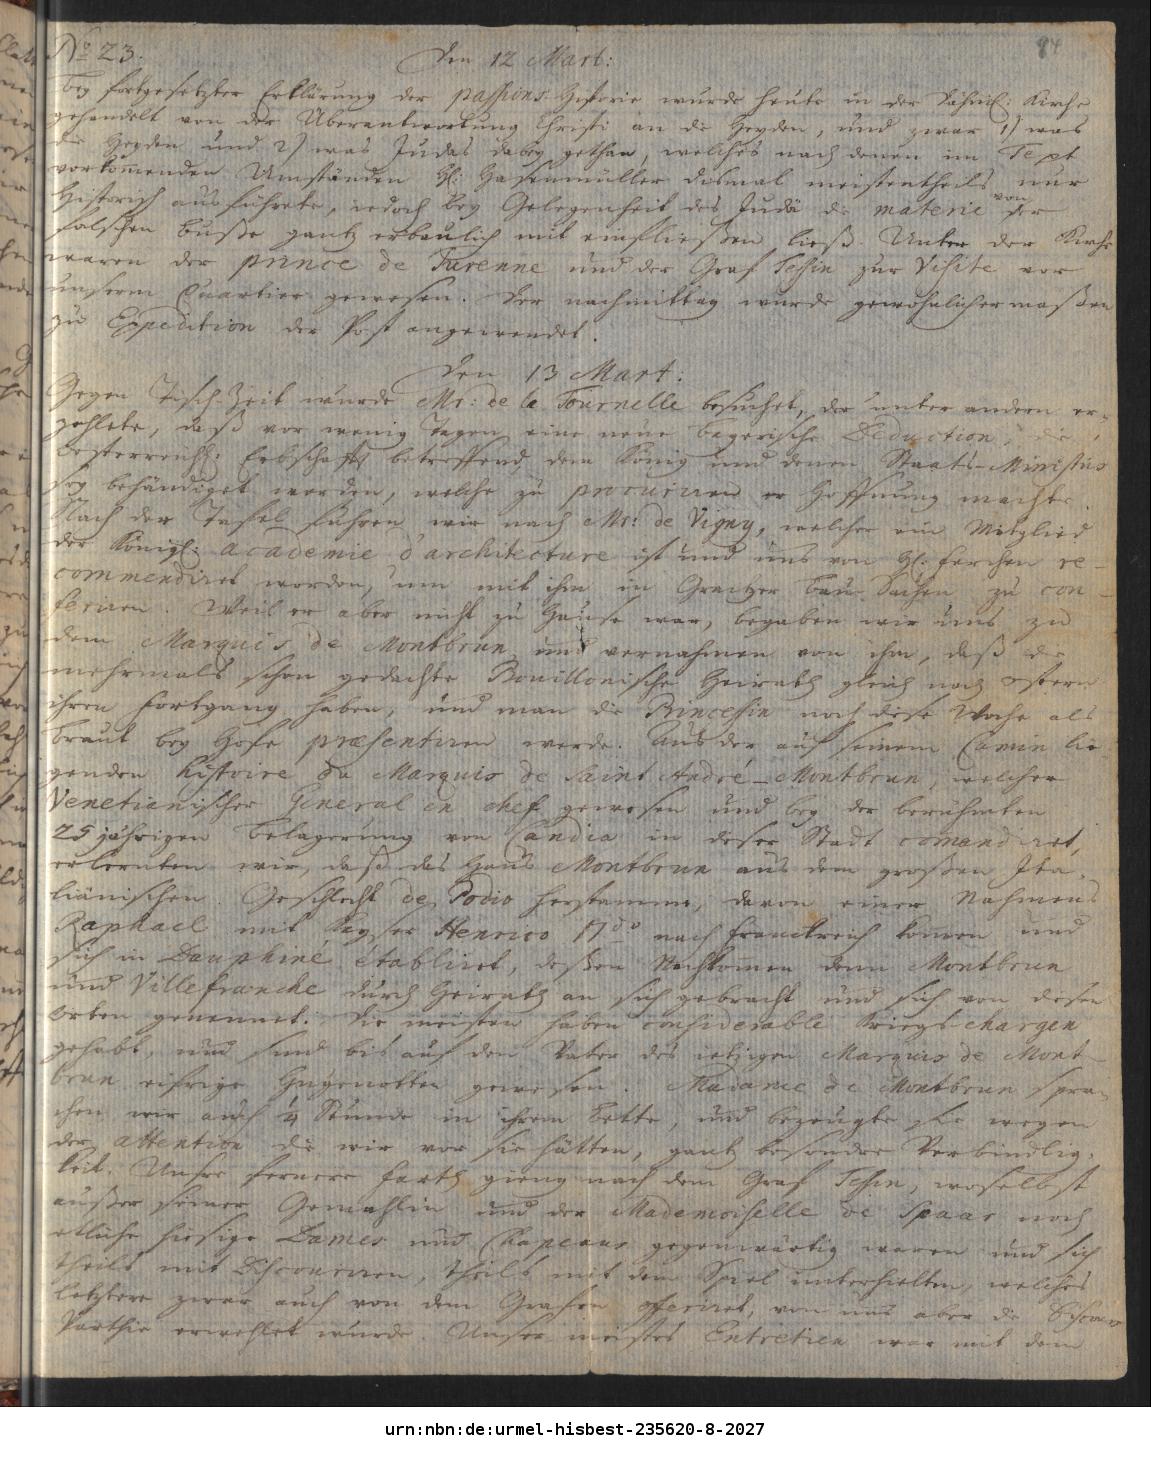 84
No 23.
Den 12 Mart:
Bey fortgesetzter Erklärung der passions-Historie wurde heute in der Dähnis: Kirche
gehandelt von der Überantwortung Christi an die Heyden, und zwar 1) was
die Heyden und 2) was Judas dabey gethan, welches nach denen im Text
vorkommenden Umständen H: Hasenmüller dismal meistentheils nur
Historisch ausführete, jedoch bey Gelegenheit des Judä die materie von der
falschen Buße gantz erbaulich mit einfließen ließ. Unter der Kirche
waren der prince de Turenne und der Graf Tessin zur Visite vor
unserm Quartier gewesen. Der nachmittag wurde gewöhnlicher maßen
zu Expedition der Post angewendet.
Den 13 Mart:
Gegen Tisch-Zeit wurde Mr: de la Tournelle besuchet, der unter andern er-
zehlete, daß vor wenig Tagen eine neue bayerische Deduction, die
Oesterreich: Erbschafft betreffend, dem König und denen Staats-Ministris
sey behändiget worden, welche zu procuriren er Hoffnung machte.
Nach der Tafel fuhren wir nach Mr: de Vigny, welcher ein Mitglied
der Königl: academie d'architecture ist und uns von H: Ferchen re-
commendiret worden, um mit ihm in Graitzer Bau-Sachen zu con-
feriren. Weil er aber nicht zu Hause war, begaben wir uns zu
dem Marquis de Montbrun und vernahmen von ihm, daß die
mehrmals schon gedachte Bouillonische Heirath gleich nach Ostern
ihren Fortgang haben, und man die Princessin noch diese Woche als
Braut bey Hofe præsentiren werde. Aus der auf seinem Camin lie-
genden histoire du Marquis de Saint André-Montbrun, welcher
Venetianischer General en chef gewesen und bey der berühmten
25 jährigen Belagerung von Candia in dieser Stadt comandiret,
erlernten wir, daß das Haus Montbrun aus dem großen Ita-
liänischen Geschlecht de Podio herstamme, davon einer Nahmens
Raphael mit Kayser Henrico IV.to nach Franckreich kommen und
sich in Dauphiné établiret, deßen Nachkommen denn Montbrun
und Villefranche durch Heirath an sich gebracht und sich von diesen
Orten genennet. Die meisten haben considerable Kriegs-chargen
gehabt, und sind bis auf den Vater des ietzigen Marquis de Mont-
brun eifrige Hugenotten gewesen. Madame de Montbrun spra-
chen wir auch ¼ Stunde in ihrem Bette, und bezeugte sie wegen
der attention die wir vor sie hätten, gantz besondre Verbindlig-
keit. Unsre fernere Farth gieng nach dem Graf Tessin, woselbst
außer seiner Gemahlin und der Mademoiselle de Spaar noch
etliche hiesige Dames und Chapeaux gegenwärtig waren und sich
theils mit Discouriren, theils mit dem Spiel unterhielten, welches
letztere zwar auch von dem Grafen offeriret, von uns aber die Discours
Parthie erwehlet wurde. Unser meistes Entretien war mit dem